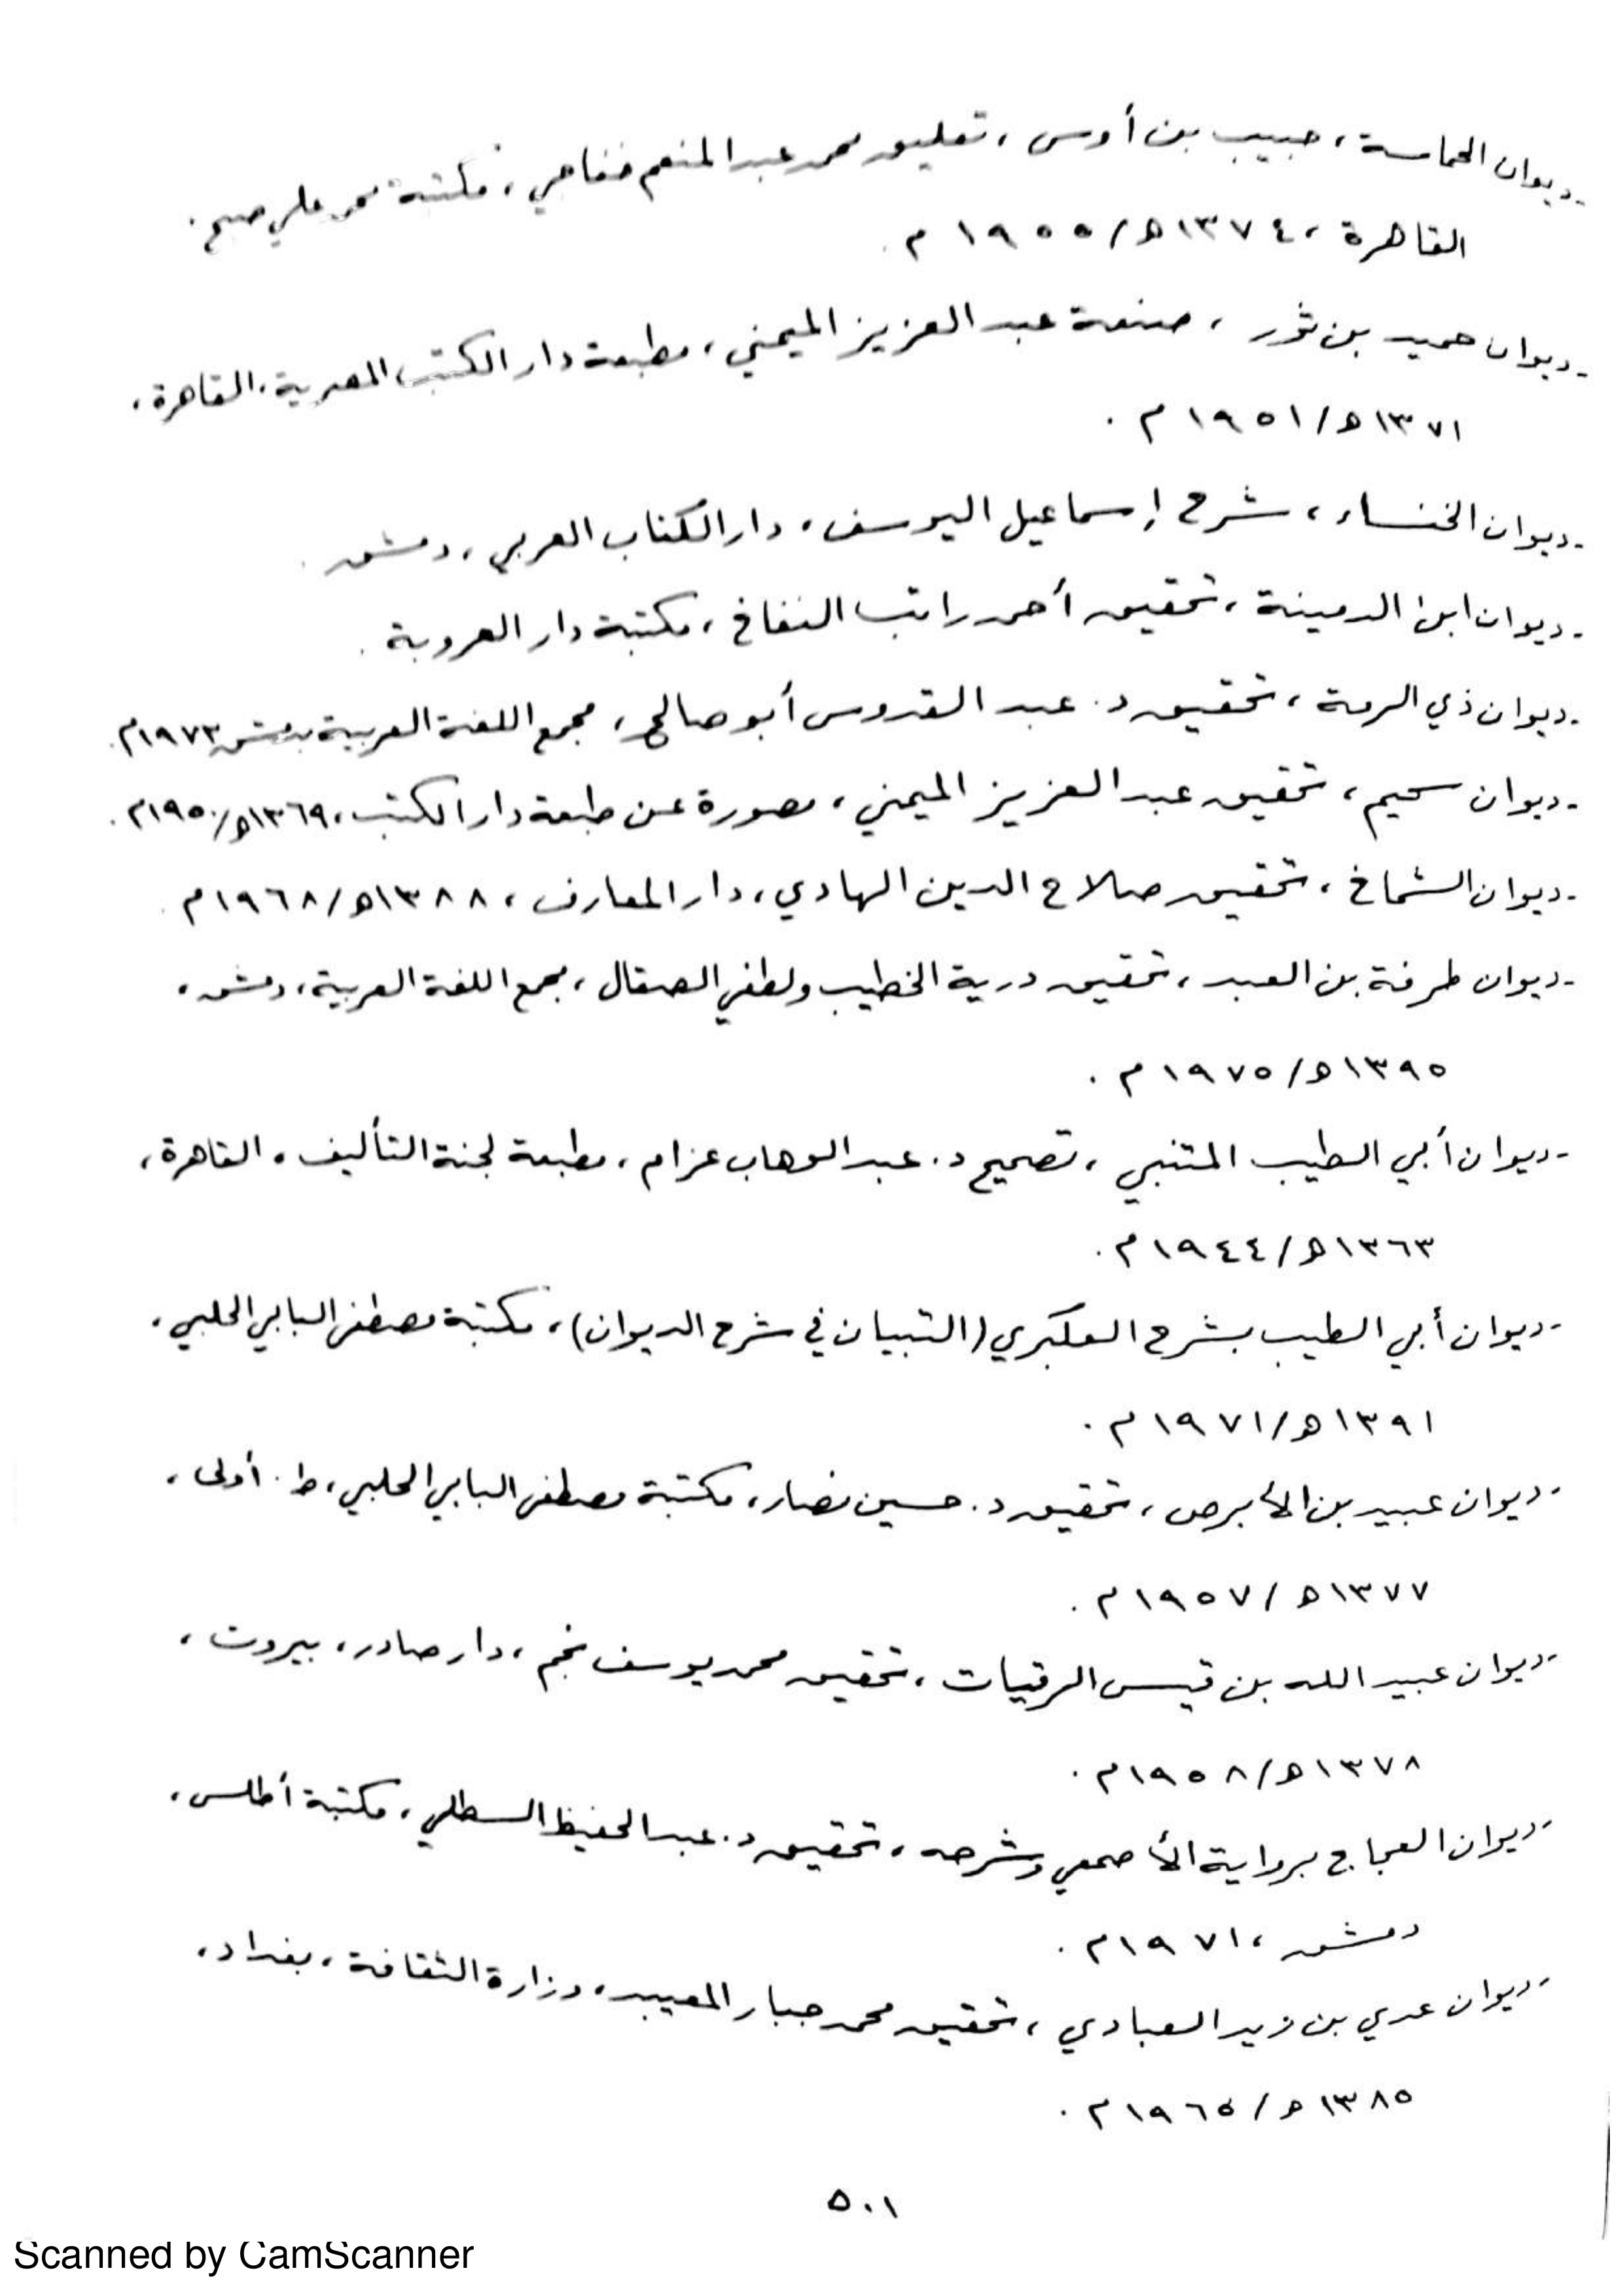 - ديوان الحماسة ، حبيب بن أوس ، تعليق محمد عبد المنعم خفاجي ، مكتبة محمد علي صبيح .
القاهرة ، ١٣٧٤ هـ / ١٩٥٥ م .
- ديوان حميد بن ثور ، صنعة عبد العزيز الميمني ، مطبعة دار الكتب المصرية ، القاهرة ،
١٣٧١ هـ / ١٩٥١ م .
- ديوان الخنساء ، شرح إسماعيل اليوسف ، دار الكتاب العربي ، دمشق .
- ديوان ابن الدمينة ، تحقيق أحمد راتب النفاخ ، مكتبة دار العروبة .
- ديوان ذي الرمة ، تحقيق د. عبد القدوس أبو صالح ، مجمع اللغة العربية بدمشق ١٩٧٣م .
- ديوان سحيم ، تحقيق عبد العزيز الميمني ، مصورة عن طبعة دار الكتب ، ١٣٦٩هـ / ١٩٥٠م .
- ديوان الشماخ ، تحقيق صلاح الدين الهادي ، دار المعارف ، ١٣٨٨هـ / ١٩٦٨م .
- ديوان طرفة بن العبد ، تحقيق درية الخطيب ولطفي الصقال ، مجمع اللغة العربية ، دمشق ،
١٣٩٥ هـ / ١٩٧٥ م .
- ديوان أبي الطيب المتنبي ، تصحيح د. عبد الوهاب عزام ، مطبعة لجنة التأليف ، القاهرة ،
١٣٦٣ هـ / ١٩٤٤ م .
- ديوان أبي الطيب بشرح العكبري (التبيان في شرح الديوان) ، مكتبة مصطفى البابي الحلبي ،
١٣٩١ هـ / ١٩٧١ م .
- ديوان عبيد بن الأبرص ، تحقيق د. حسين نصار ، مكتبة مصطفى البابي الحلبي ، ط. أولى ،
١٣٧٧ هـ / ١٩٥٧ م .
- ديوان عبيد الله بن قيس الرقيات ، تحقيق محمد يوسف نجم ، دار صادر ، بيروت ،
١٣٧٨ هـ / ١٩٥٨م .
- ديوان العجاج برواية الأصمعي وشرحه ، تحقيق د. عبد الحفيظ السطلي ، مكتبة أطلس ،
دمشق ، ١٩٧١م .
- ديوان عدي بن زيد العبادي ، تحقيق محمد جبار المعيبد ، وزارة الثقافة ، بغداد ،
١٣٨٥ هـ / ١٩٦٥ م .
٥٠١
Scanned by CamScanner